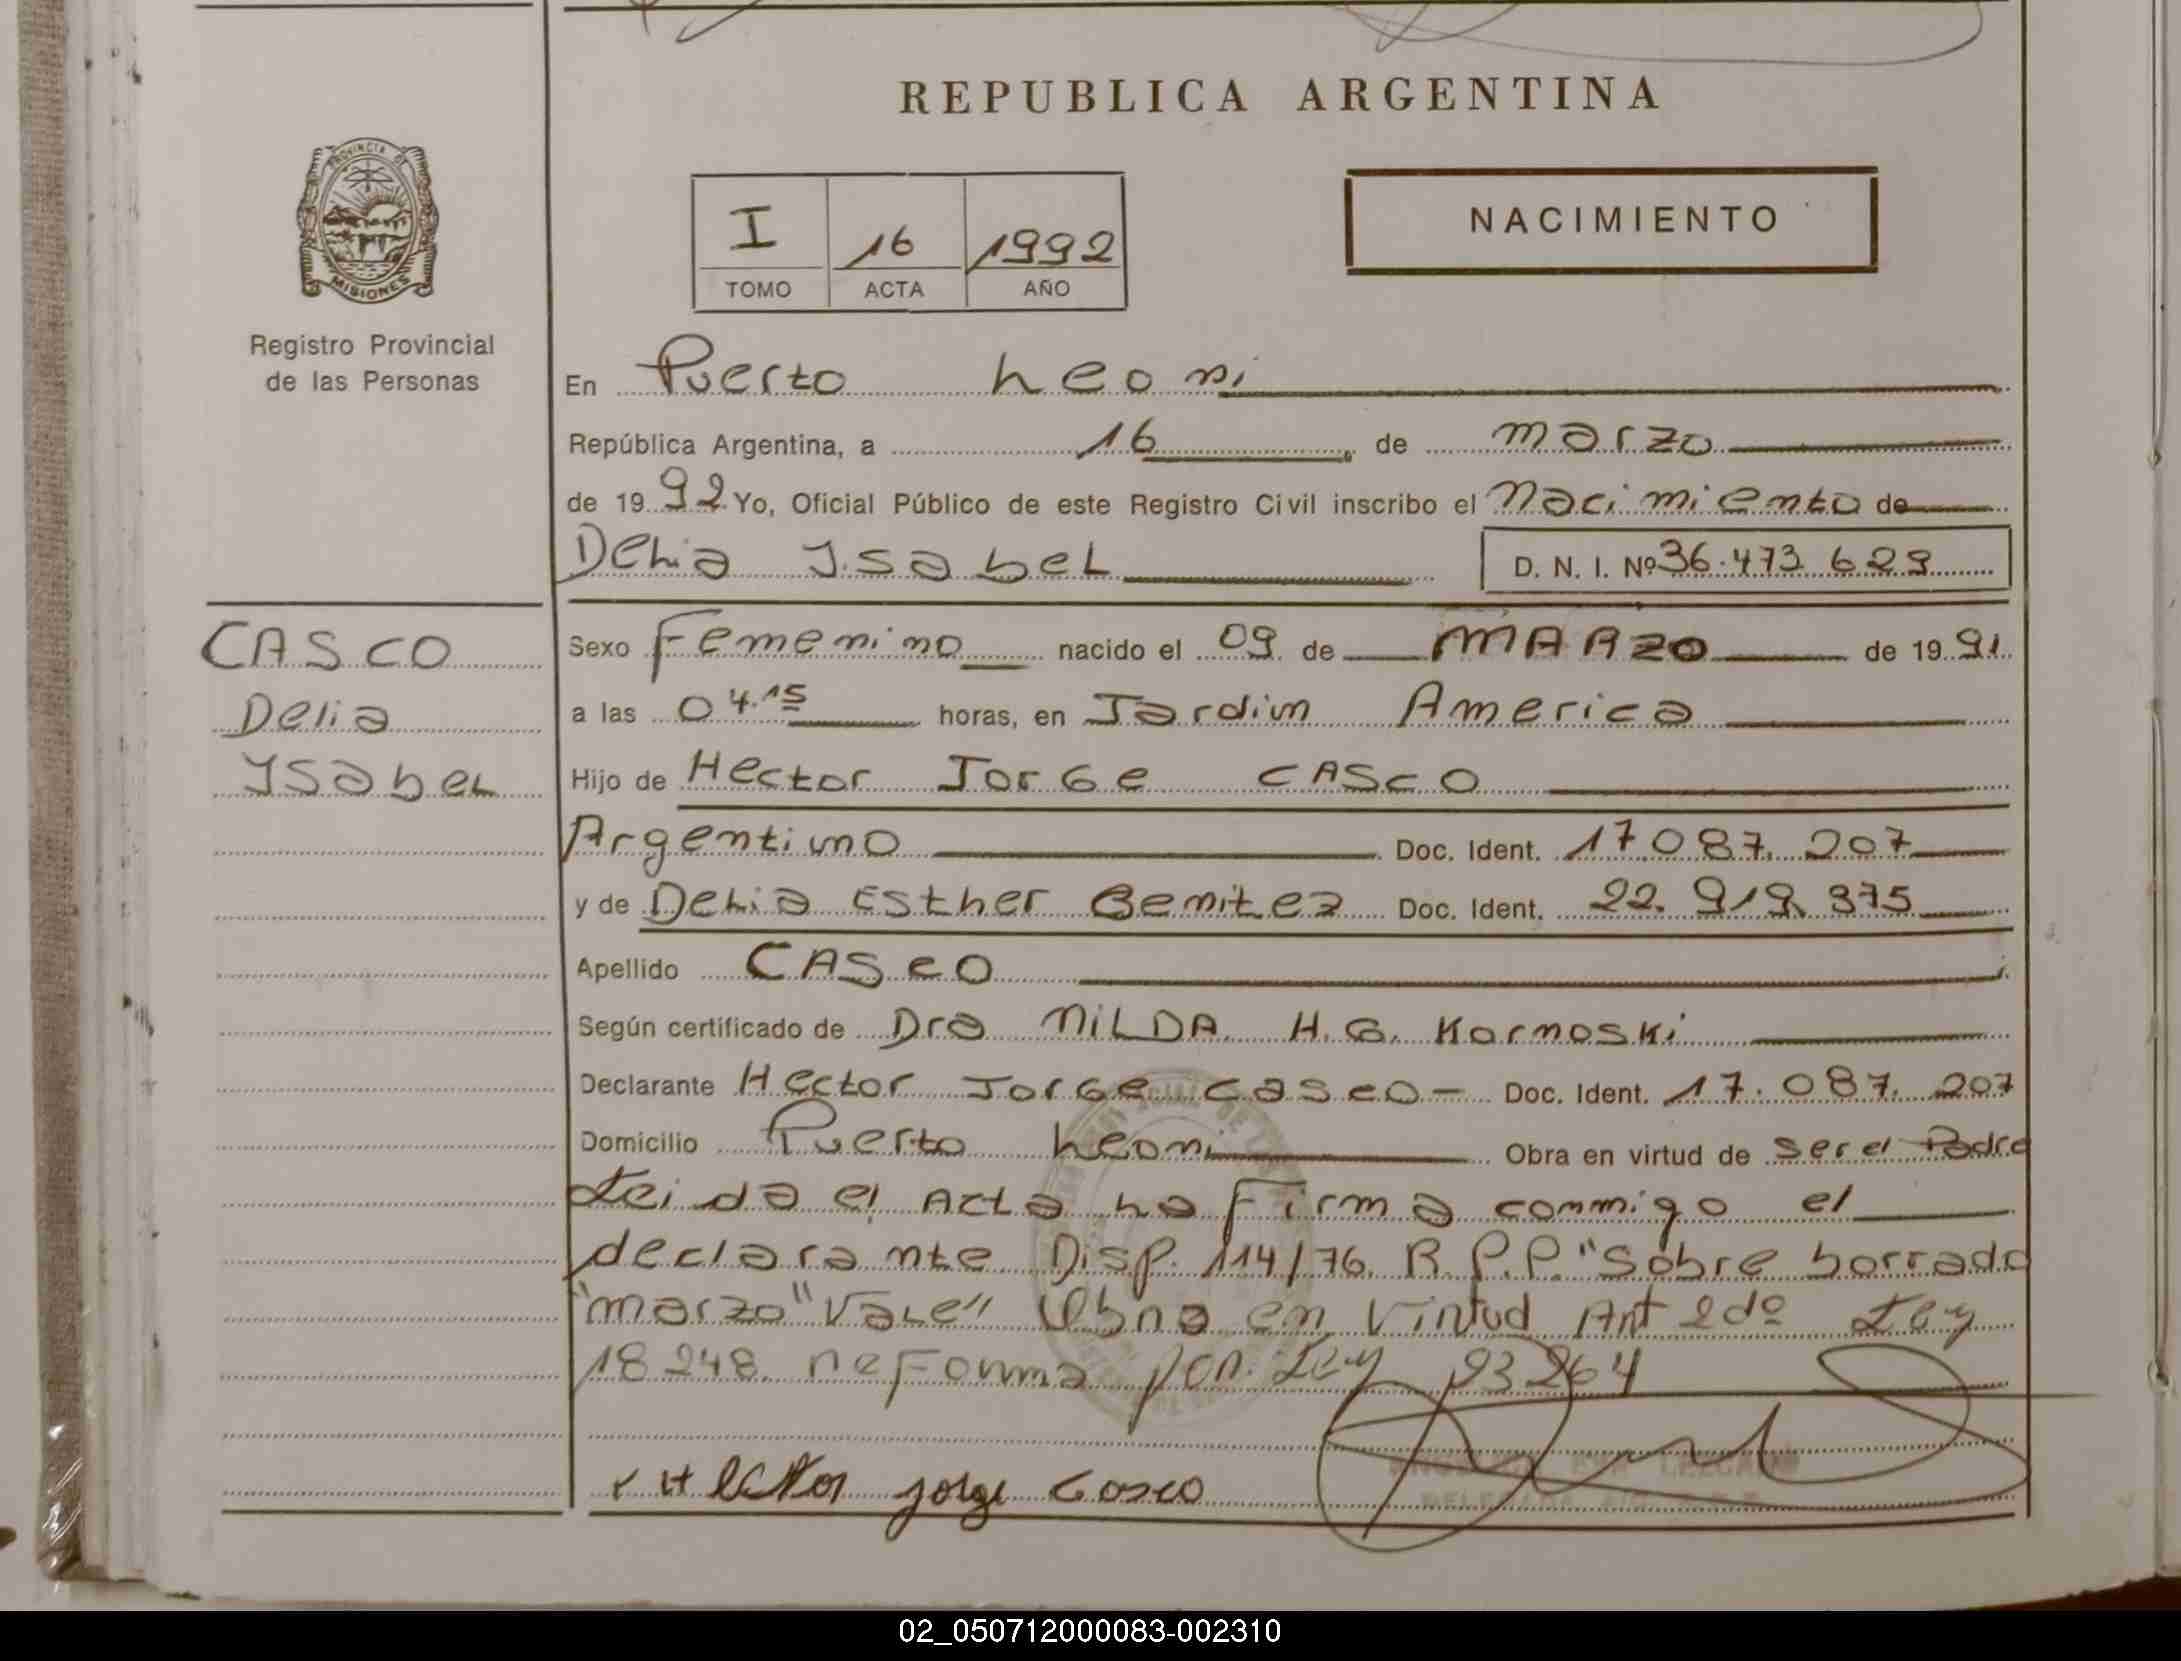 REPUBLICA ARGENTINA
PROVINCIA DE
MISIONES
Registro Provincial
de las Personas
I 16 1992
TOMO ACTA AÑO
NACIMIENTO
En Puerto Leoni
República Argentina, a 16 de marzo
de 1992 Yo, Oficial Público de este Registro Civil inscribo el Nacimiento de
Delia Ysabel D. N. I. Nº 36.473.629
CASCO
Delia
Ysabel
Sexo Femenino nacido el 09 de MARZO de 1991
a las 04.15 horas, en Jardin America
Hijo de Hector Jorge CASCO
Argentino Doc. Ident. 17.087.207
y de Delia Esther Benitez Doc. Ident. 22.919.375
Apellido CASCO
Según certificado de Dra NILDA H.G. Kornoski
Declarante Hector Jorge Casco - Doc. Ident. 17.087.207
Domicilio Puerto Leoni Obra en virtud de ser el Padre
Leida el Acta la Firma conmigo el
declarante Disp. 114/76 R.P.P. "Sobre borrado
"marzo" Vale" Obra en Virtud Art 2do Ley
18248 reforma por Ley 23264
Hector Jorge Casco
02_050712000083-002310